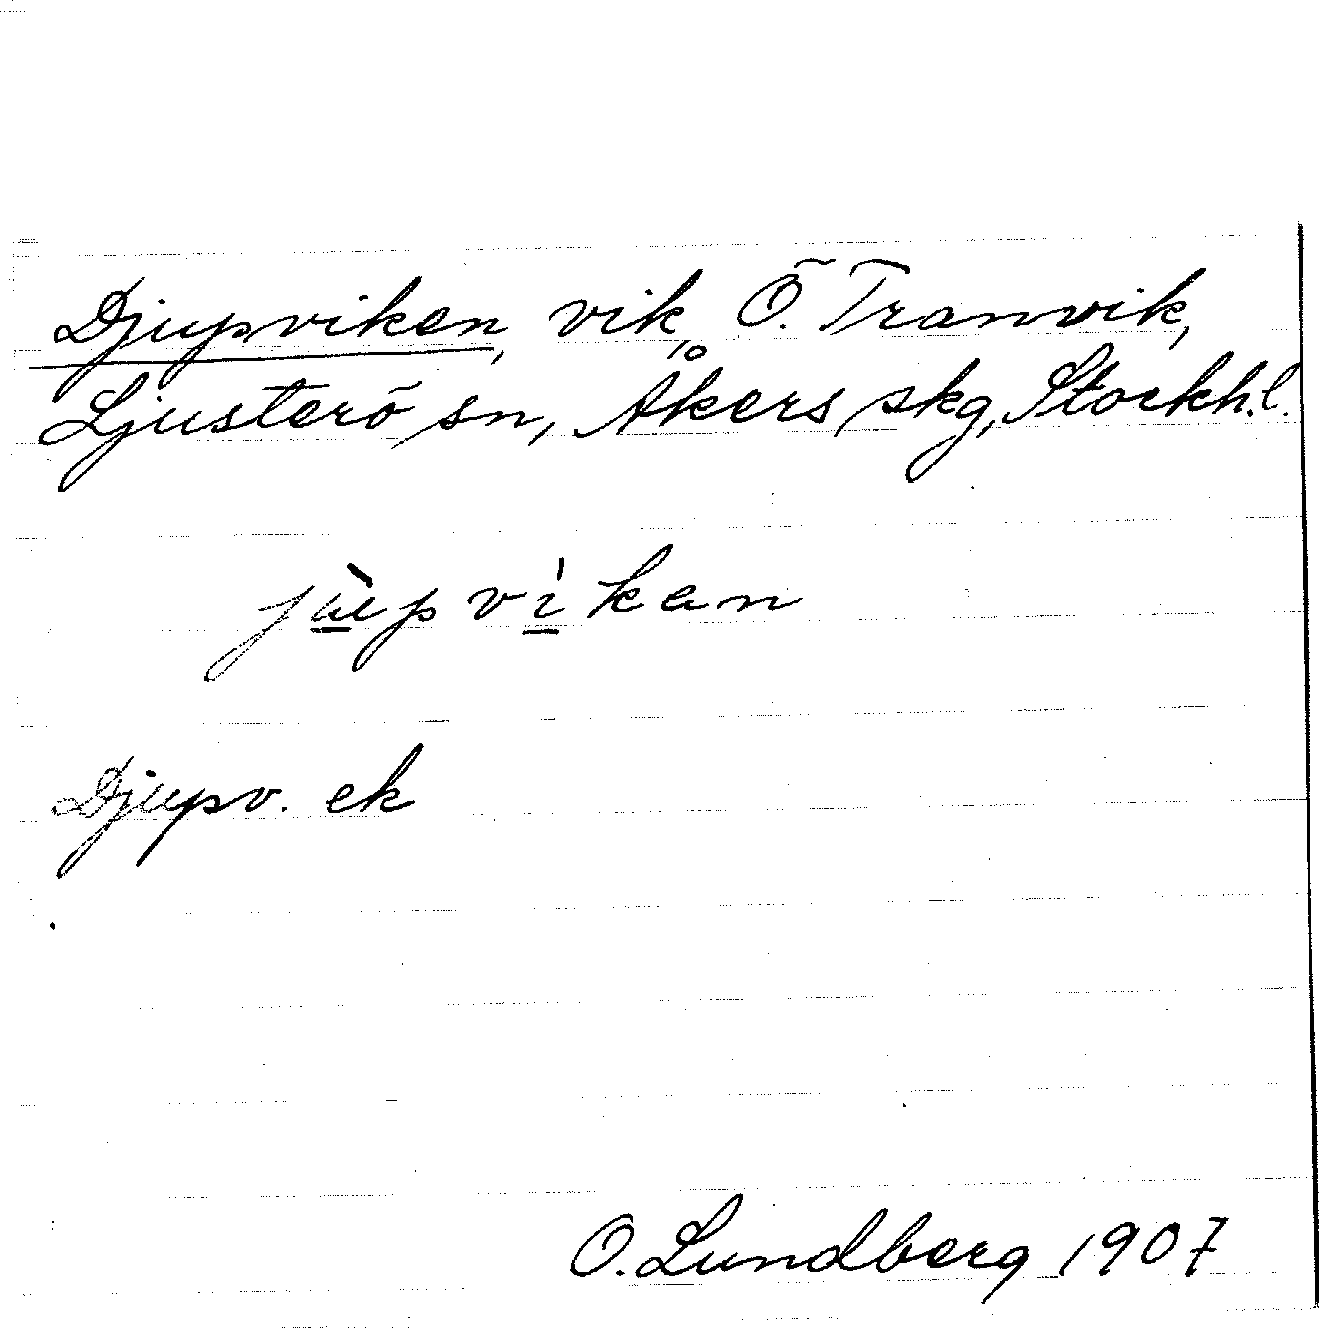 Djupviken, vik, Ö. Tranvik,
Ljusterö sn, Åkers skg, Stockh.l.
jùpvìkan
Djupv. ek
O. Lundberg 1907